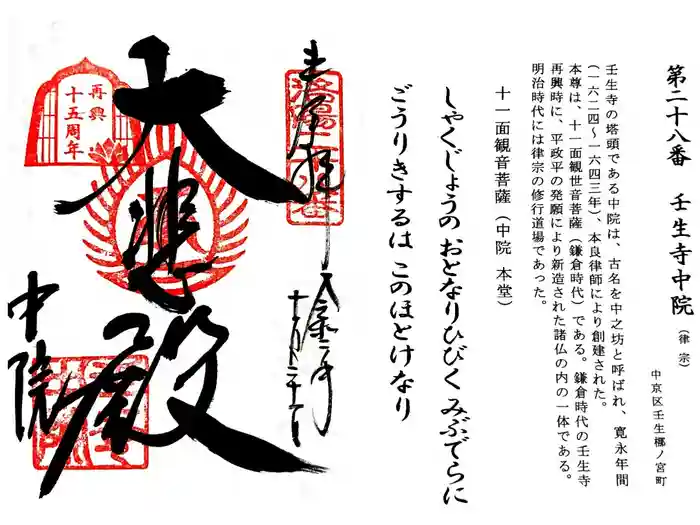 第二十八番 壬生寺中院 (律宗)
中京区壬生梛ノ宮町
壬生寺の塔頭である中院は、古名を中之坊と呼ばれ、寛永年間
(一六二四〜一六四三年)、本良律師により創建された。
本尊は、十一面観世音菩薩(鎌倉時代)である。鎌倉時代の壬生寺
再興時に、平政平の発願により新造された諸仏の内の一体である。
明治時代には律宗の修行道場であった。
十一面観音菩薩(中院 本堂)
しゃくじょうの おとなりひびく みぶでらに
ごうりきするは このほとけなり
奉拝
大悲殿
再興
十五周年
中院